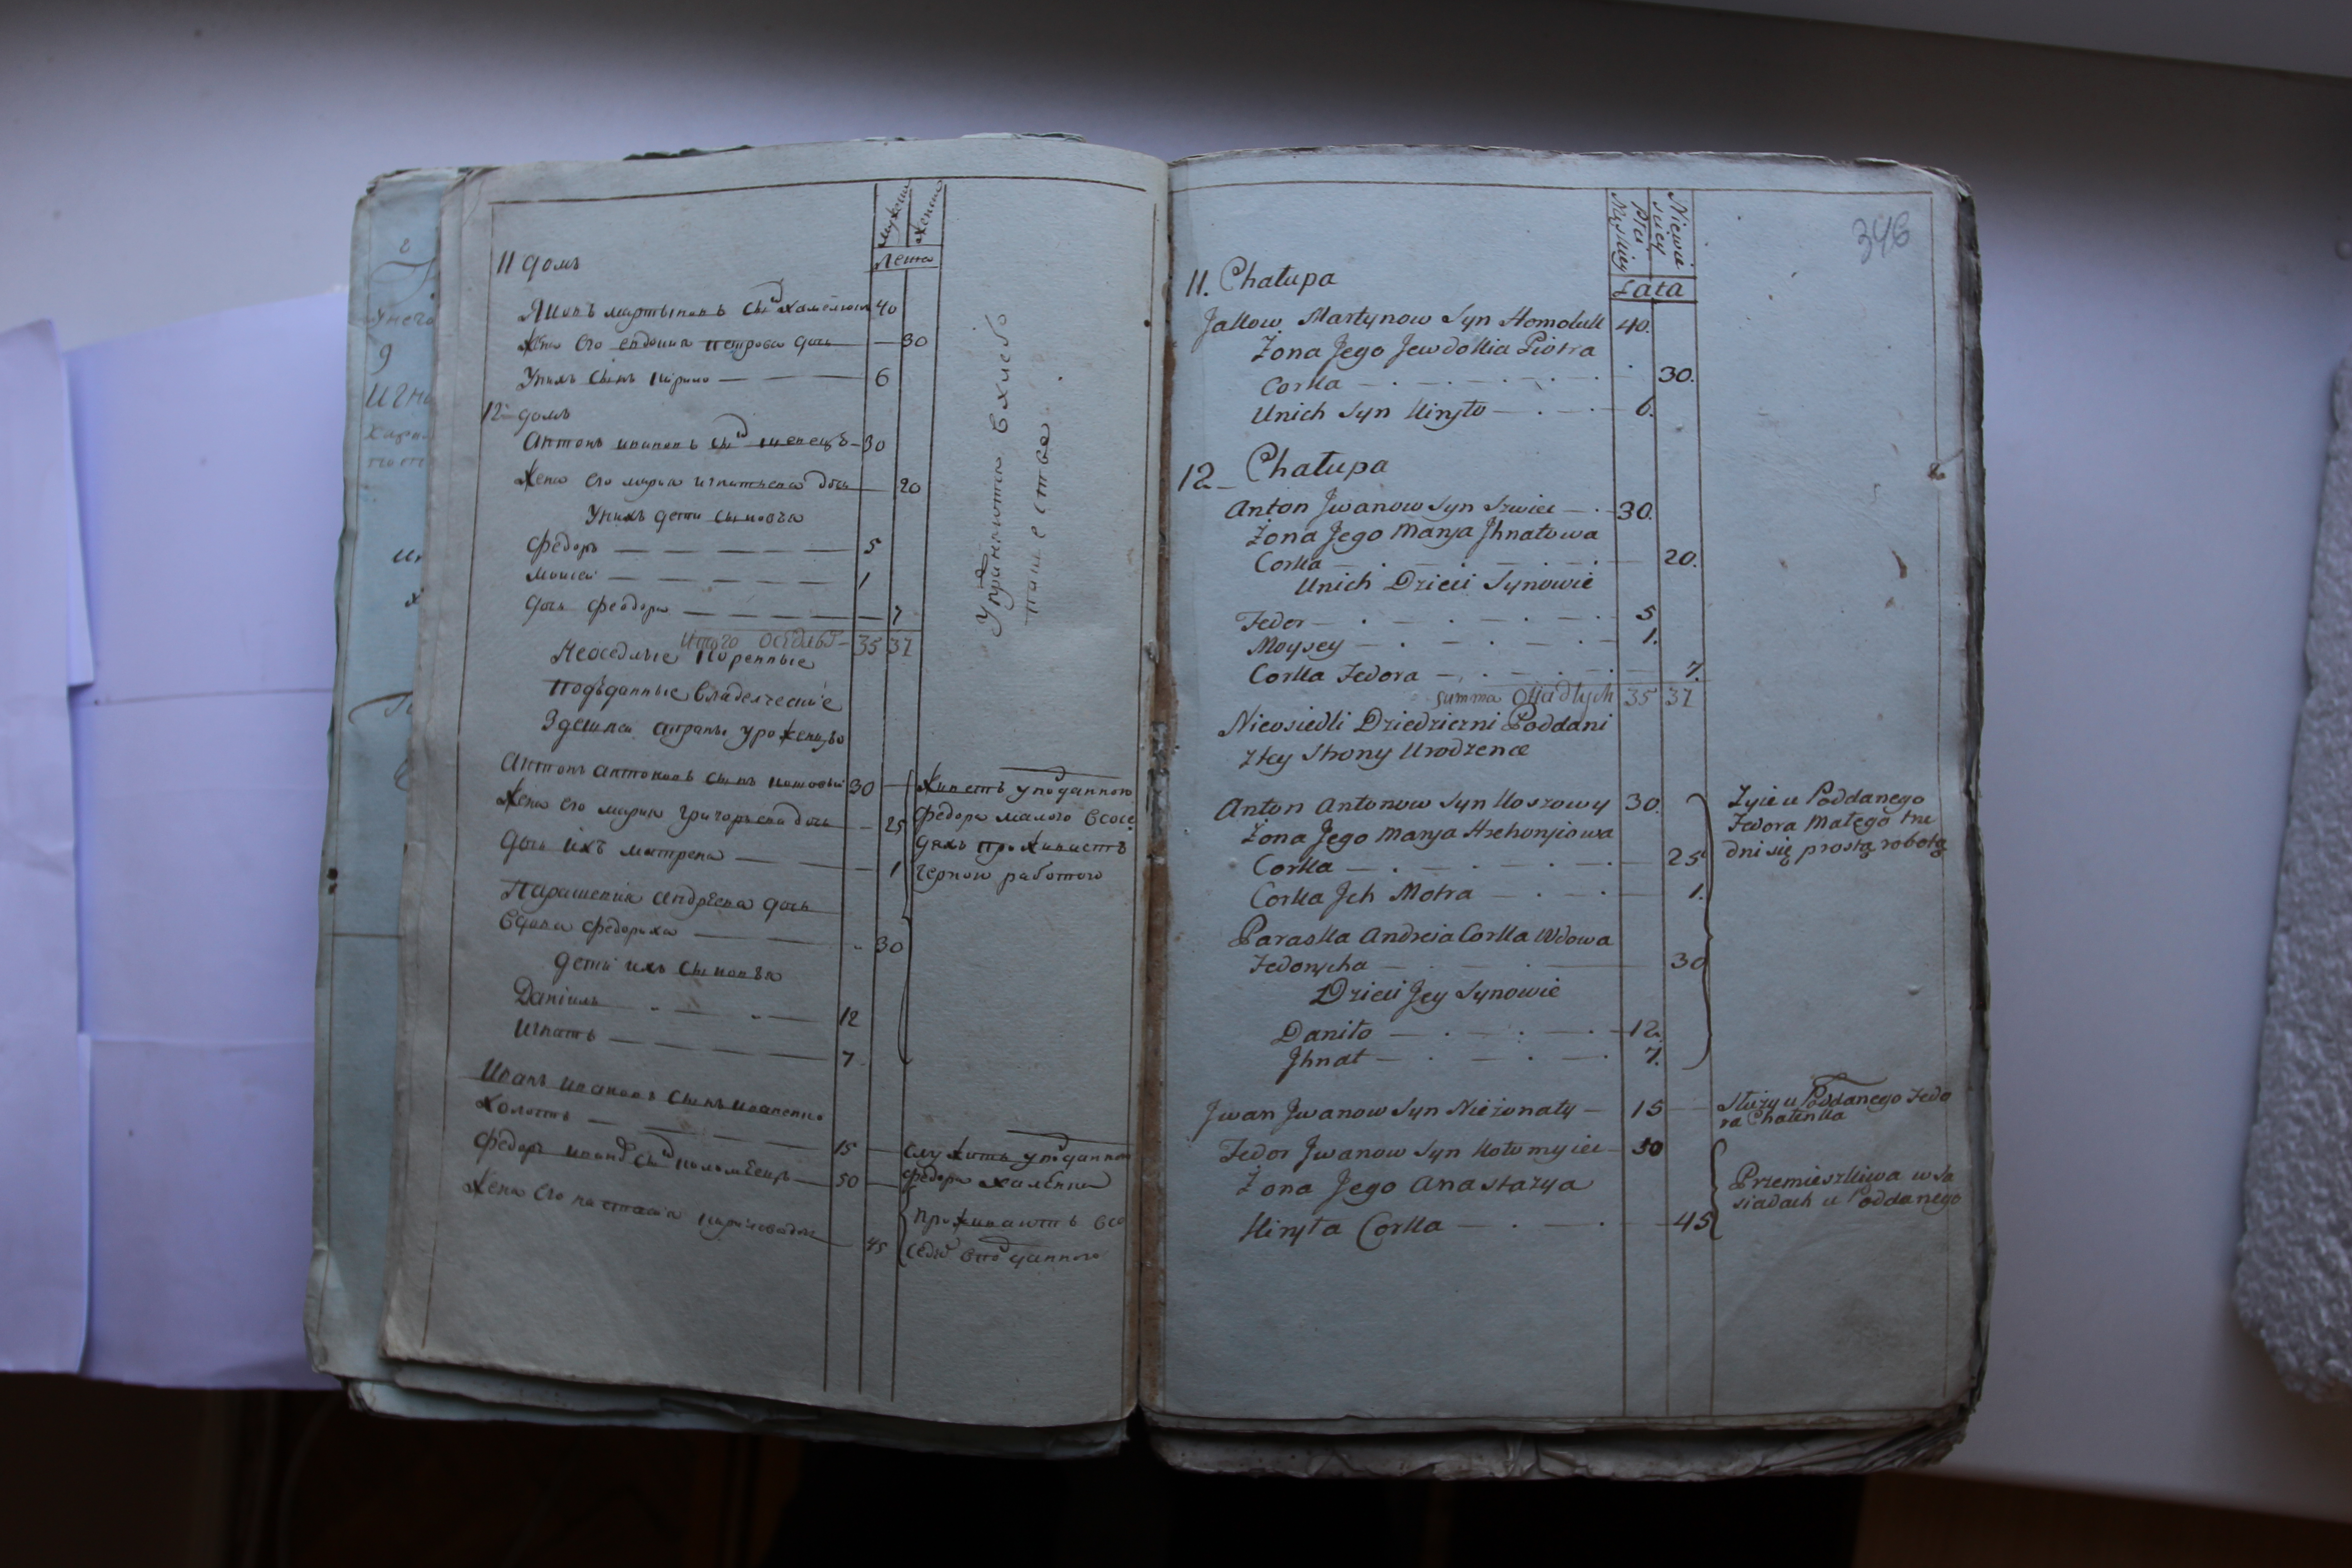 мужеска
женска
Лета
11 домъ
Яковъ мартыновъ сынъ хамелюкъ 40
Жена его евдокия петрова дочь — 30
Унихъ сынъ кирило — 6
12 домъ
Антонъ ивановъ сынъ швецъ — 30
Жена его мария игнатьева дочь — 20
Унихъ дети сыновья
Федоръ — 5
Моисей — 1
дочь феодора — 7
Итого оседлыхъ — 35 37
Неоседлые коренные
подъданные владелческие
Здешней страны уроженцы
Антонъ антоновъ сынъ кошовый 30
Жена его мария григорьева дочь — 25
дочь ихъ матрена — 1
Парашевия андреева дочь
вдова федориха — 30
дети ихъ сыновья
Даниилъ — 12
Игнатъ — 7
Иванъ ивановъ сынъ
холостъ — 15
Федоръ ивановъ сынъ коломеецъ — 50
Жена его настасия кирилова дочь — 45
Упражняются в хлебо
пашестве
Живетъ уподданного
Федора малого всосе
дяхъ
черною работою
служитъ уподданного
Федора халенка
проживаютъ всо
седст вподданного
346
Męskiey
Płci
Niewie
sciey
Lata
11. Chałupa
Jakow Martynow Syn Homoluk 40.
Żona Jego Jewdokia Piotra
Corka — 30.
Unich Syn Kiryło — 6.
12 Chałupa
Anton Jwanow Syn Szwiec — 30.
Żona Jego Marya Jhnatowa
Corka — 20.
Unich Dzieci Synowie
Fedor — 5
Moysey — 1.
Corka Fedora — 7.
Summa Osiadłych 35 37
Nieosiedli Dziedziczni Poddani
Ztey Strony Urodzence
Anton Antonow Syn Koszowy 30.
Żona Jego Marya Hrehoryiowa
Corka — 25
Corka Jch Motra — 1.
Paraska Andreia Corka Wdowa
Fedorycha — 30
Dzieci Jey Synowie
Daniło — 12.
Jhnat — 7.
Jwan Jwanow Syn Nieżonaty — 15
Fedor Jwanow Syn Kołomyiec — 50
Żona Jego Anastazya
Kiryła Corka — 45
Żyie u Poddanego
Fedora Małego tru
dni się prostą robotą
Służy u Poddanego Fedo
ra Chalenka
Przemieszkiwa w Są
siadach u Poddanego